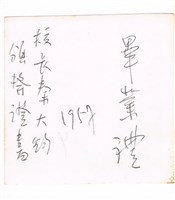 畢業禮
1957
校長秦大鈞
頒發證書